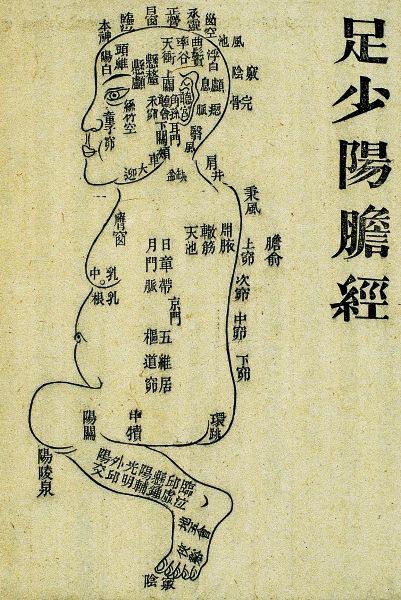 足少陽膽經
腦空
承靈
正營
目窗
本神
陽白
頭維
懸顱
懸釐
天衝
率谷
曲鬢
浮白
風池
陰
竅
完骨
上關
角孫
耳門
聽宮
聽會
下關
禾窌
絲竹空
童子窌
翳風
大迎
肩井
秉風
膺窗
乳中
乳根
天池
輒筋
淵腋
日月
章門
帶脈
京門
五樞
維道
居窌
膽俞
上窌
次窌
中窌
下窌
環跳
中犢
陽關
陽陵泉
陽交
外丘
光明
陽輔
懸鍾
丘虛
臨泣
地五會
俠谿
竅陰